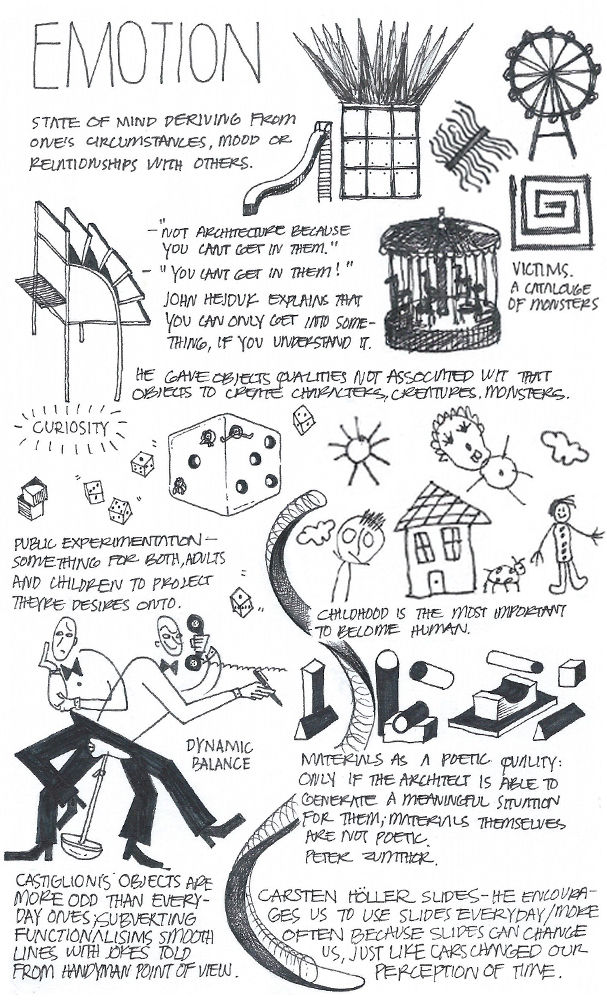 EMOTION
STATE OF MIND DERIVING FROM
ONE'S CIRCUMSTANCES, MOOD OR
RELATIONSHIPS WITH OTHERS.
- "NOT ARCHITECTURE BECAUSE
YOU CANT GET IN THEM."
- "YOU CANT GET IN THEM!"
JOHN HEJDUK EXPLAINS THAT
YOU CAN ONLY GET INTO SOME-
THING, IF YOU UNDERSTAND IT.
VICTIMS.
A CATALOUGE
OF MONSTERS
HE GAVE OBJECTS QUALITIES NOT ASSOCIATED WIT THAT
OBJECTS TO CREATE CHARACTERS, CREATURES, MONSTERS.
CURIOSITY
PUBLIC EXPERIMENTATION -
SOMETHING FOR BOTH, ADULTS
AND CHILDREN TO PROJECT
THEYRE DESIRES ONTO.
CHILDHOOD IS THE MOST IMPORTANT
TO BECOME HUMAN.
DYNAMIC
BALANCE
MATERIALS AS A POETIC QUALITY:
ONLY IF THE ARCHITECT IS ABLE TO
GENERATE A MEANINGFUL SITUATION
FOR THEM; MATERIALS THEMSELVES
ARE NOT POETIC.
PETER ZUMTHOR.
CASTIGLIONIS' OBJECTS ARE
MORE ODD THAN EVERY-
DAY ONES; SUBVERTING
FUNCTIONALISING SMOOTH
LINES WITH JOKES TOLD
FROM HANDYMAN POINT OF VIEW.
CARSTEN HÖLLER SLIDES - HE ENCOURA-
GES US TO USE SLIDES EVERYDAY/MORE
OFTEN BECAUSE SLIDES CAN CHANGE
US, JUST LIKE CARS CHANGED OUR
PERCEPTION OF TIME.